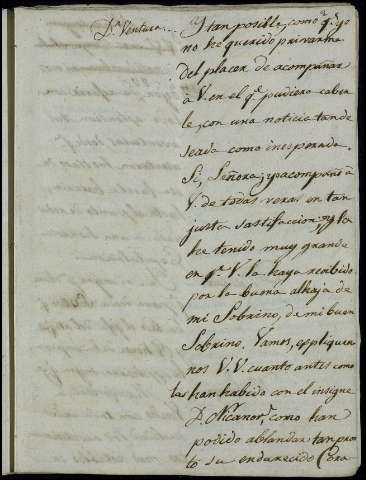 Dn Ventura... Y tan posible, como qe yo
no he querido privarme
del placer de acompañar
á V. en el qe pudiera caber
le, con una noticia tan de
seada como inesperada.
Si, Señora; yo acompaño á
V. de todas veras en tan
justa sastifaccion; y la
he tenido muy grande
en qe V. la haya recibido
por la buena alhaja de
mi Sobrino, de mi buen
Sobrino. Vamos, expliquen
nos V.V. cuanto antes como
las han habido con el insigne
Dn Nicanor, como han
podido ablandar tan pron
to su endurecido cora-